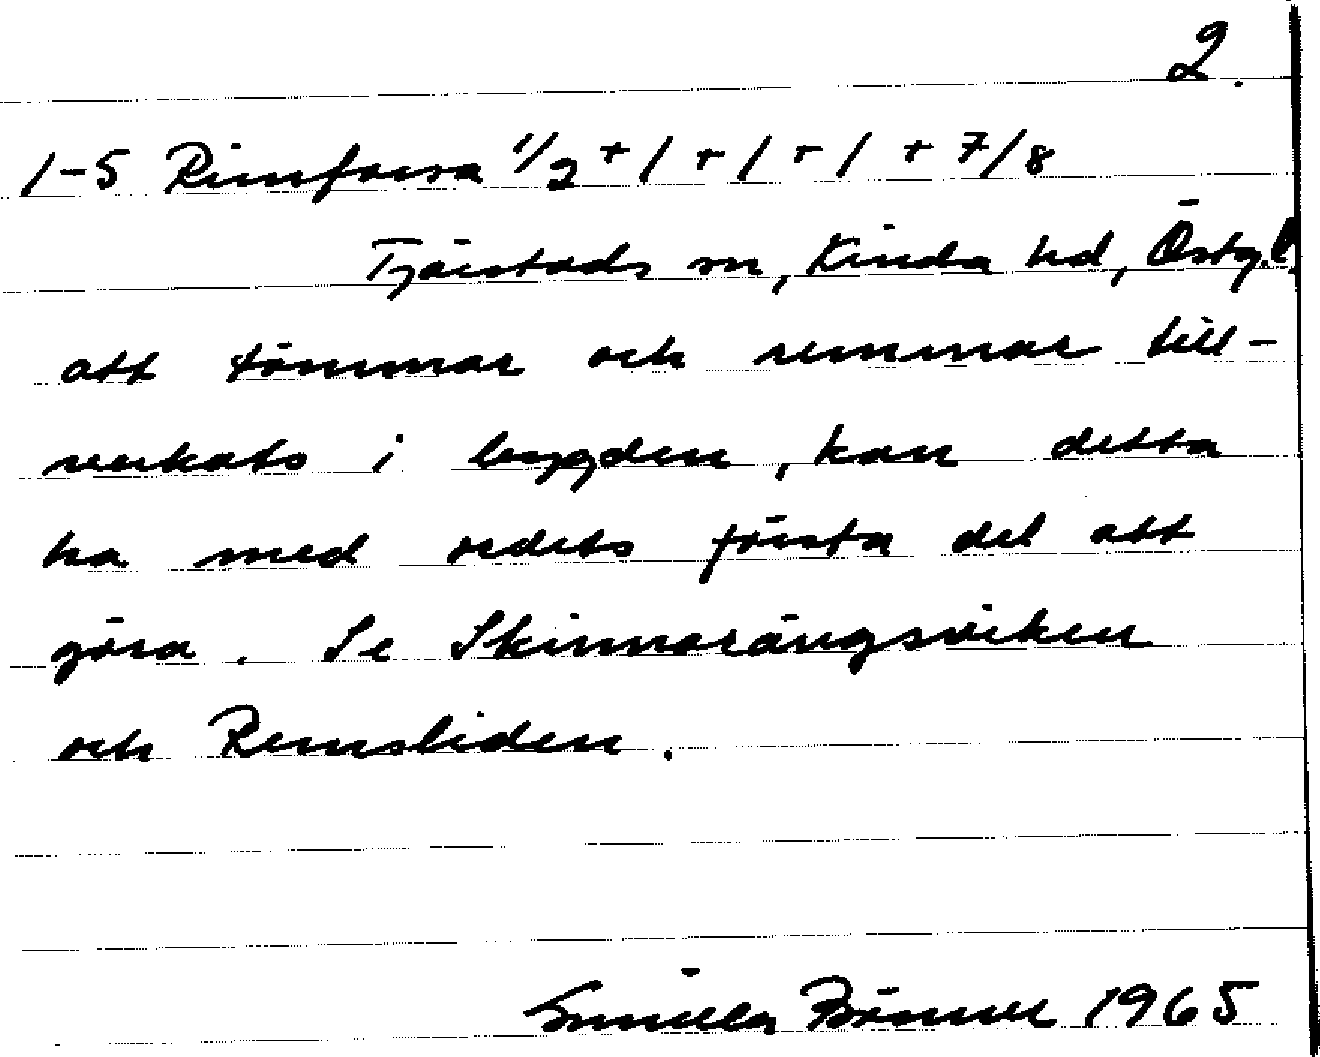 2.
1-5 Rimforsa 1/2 + 1 + 1 + 1 + 7/8
Tjärstads sn, Kinda hd, Östg.l.
att tömmar och remmar till-
verkats i bygden, kan detta
ha med ordets första del att
göra. Se Skinnarängsviken
och Remsliden.
1965